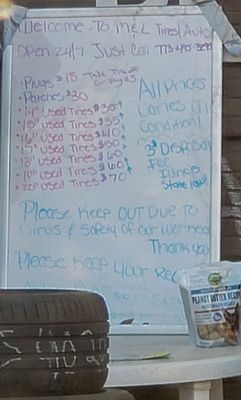 Welcome To M&L Tires/Auto
Open 24/7 Just Call
Plugs $15
Patches $30
14" used Tires $30↑
15" used Tires $35↑
16" used Tires $40↑
17" used Tires $50↑
18" used Tires $60
19" used Tires $60↑
20" used Tires $70
All Prices
Varies on
Condition!
3$ Disposal
Fee
Illinois
State law!
Please Keep OUT Due To
Virus & Safety of our workers
Thank you
Please Keep Your
PEANUT BUTTER